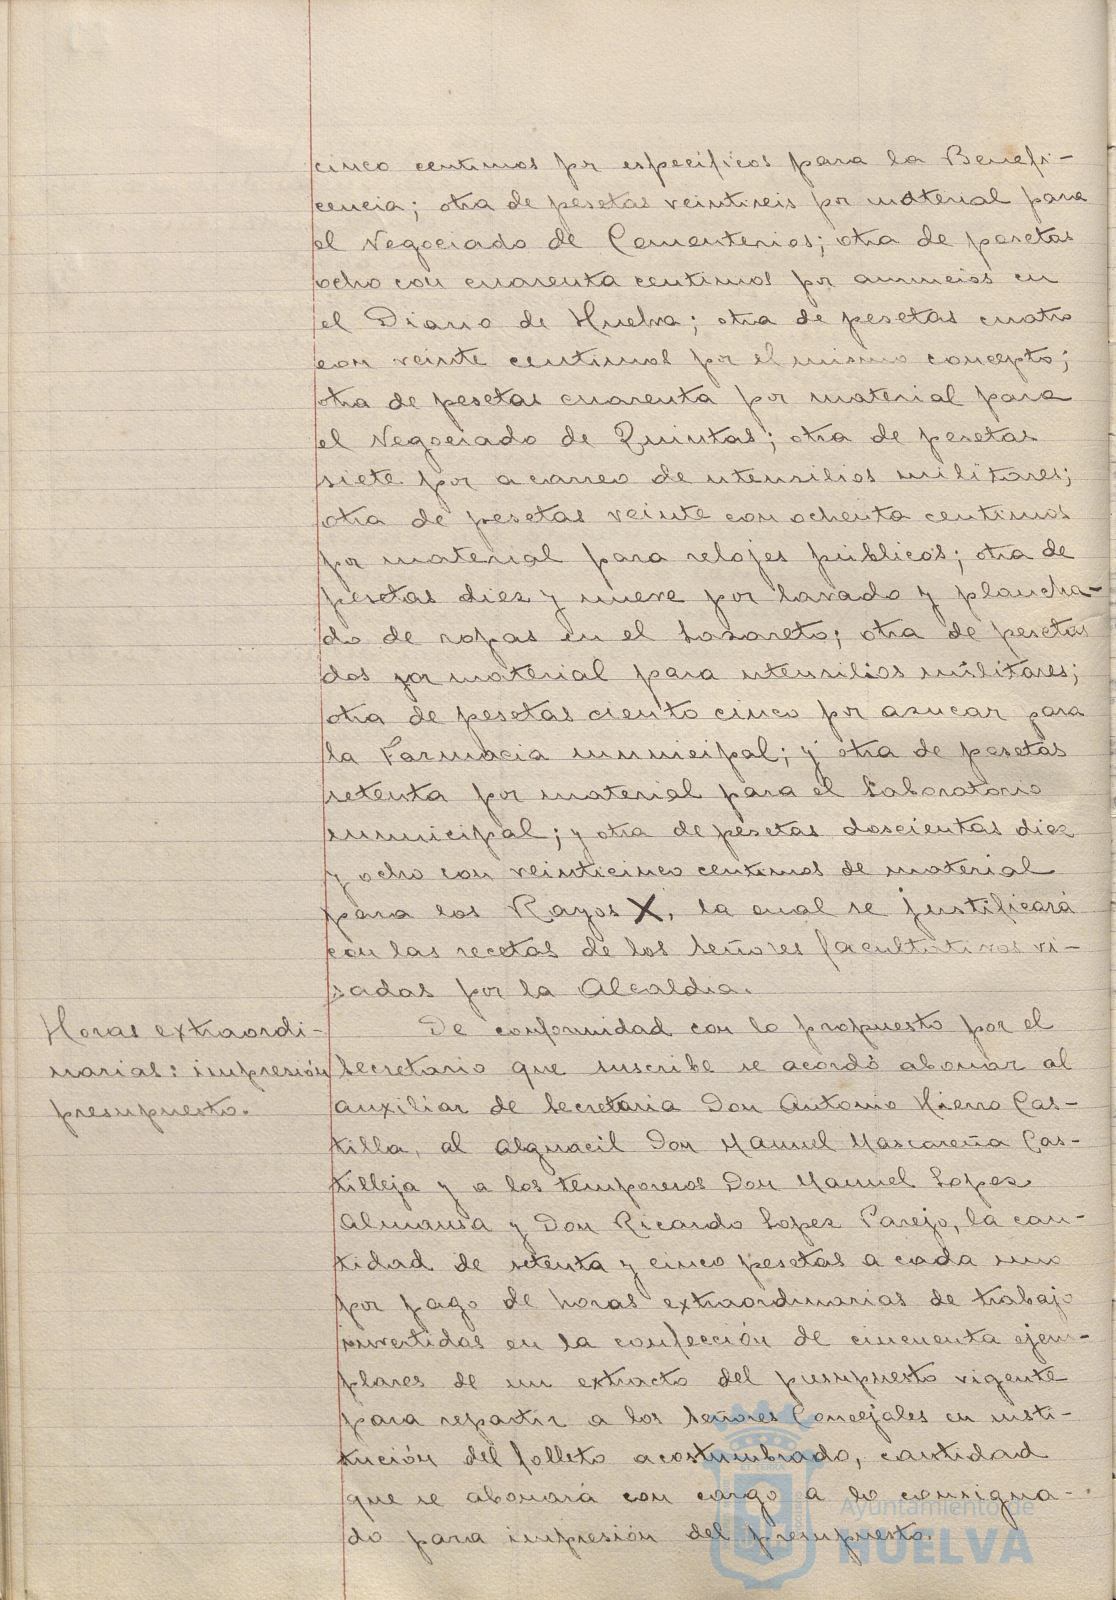 cinco centimos pr especificos para la Benefi-
cencia; otra de pesetas veintiseis por material para
el Negociado de Cementerios; otra de pesetas
ocho con cuarenta centimos por anuncios en
el Diario de Huelva; otra de pesetas cuatro
con veinte centimos por el mismo concepto;
otra de pesetas cuarenta por material para
el Negociado de Quintas; otra de pesetas
siete por acarreo de utensilios militares;
otra de pesetas veinte con ochenta centimos
por material para relojes públicos; otra de
pesetas diez y nueve por lavado y plancha-
do de ropas en el Lazareto; otra de pesetas
dos por material para utensilios militares;
otra de pesetas ciento cinco por azucar para
la Farmacia municipal; y otra de pesetas
setenta por material para el Laboratorio
municipal; y otra de pesetas doscientas diez
y ocho con veinticinco centimos de material
para los Rayos X, la cual se justificará
con las recetas de los señores facultativos vi-
sadas por la Alcaldia.
Horas extraordi-
narias: impresión
presupuesto.
De conformidad con lo propuesto por el
Secretario que suscribe se acordó abonar al
auxiliar de Secretaria Don Antonio Hierro Cas-
tilla, al alguacil Don Manuel Mascareña Cas-
tilleja y a los temporeros Don Manuel Lopez
Almansa y Don Ricardo Lopez Parejo, la can-
tidad de setenta y cinco pesetas a cada uno
por pago de horas extraordinarias de trabajo
invertidas en la confección de cincuenta ejem-
plares de un extracto del presupuesto vigente
para repartir a los señores Concejales en susti-
tución del folleto acostumbrado, cantidad
que se abonará con cargo a lo consigna-
do para impresión del presupuesto.
Ayuntamiento de
HUELVA